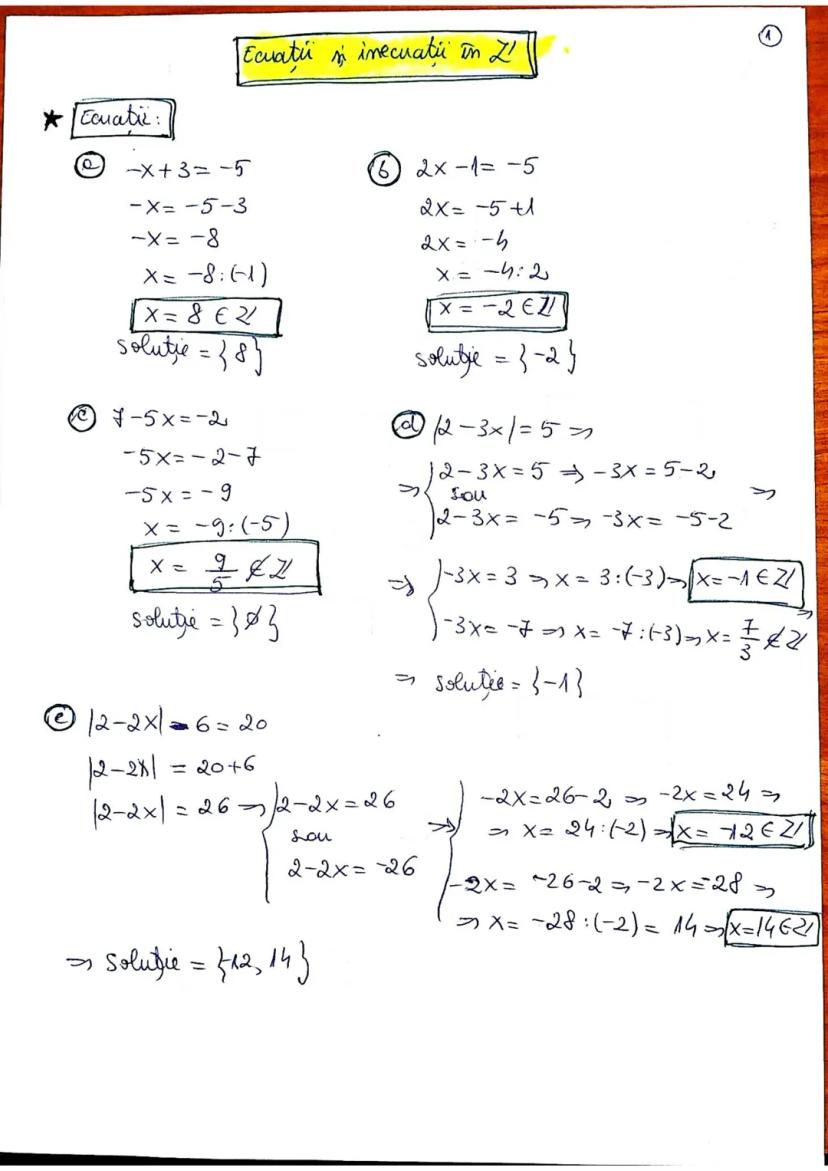 1
Ecuații și inecuații în ℤ
★ Ecuații:
a) -x+3=-5
-x=-5-3
-x=-8
x=-8:(-1)
x=8 ∈ ℤ
soluție={8}
b) 2x-1=-5
2x=-5+1
2x=-4
x=-4:2
x=-2 ∈ ℤ
soluție={-2}
c) 7-5x=-2
-5x=-2-7
-5x=-9
x=-9:(-5)
x=9/5 ∉ ℤ
soluție={∅}
d) |2-3x|=5 ⇒
⇒ { 2-3x=5 ⇒ -3x=5-2
sau ⇒
2-3x=-5 ⇒ -3x=-5-2
⇒ { -3x=3 ⇒ x=3:(-3) ⇒ x=-1 ∈ ℤ
-3x=-7 ⇒ x=-7:(-3) ⇒ x=7/3 ∉ ℤ ⇒
⇒ soluție={-1}
e) |2-2x|-6=20
|2-2x|=20+6
|2-2x|=26 ⇒ { 2-2x=26
sau
2-2x=-26
⇒ { -2x=26-2 ⇒ -2x=24 ⇒
⇒ x=24:(-2) ⇒ x=-12 ∈ ℤ
-2x=-26-2 ⇒ -2x=-28 ⇒
⇒ x=-28:(-2)=14 ⇒ x=14 ∈ ℤ
⇒ soluție={-12, 14}